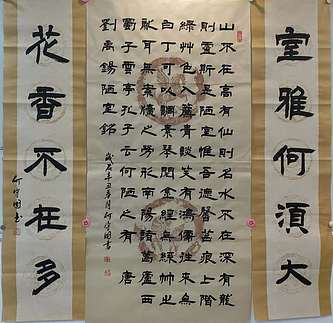 室雅何須大
山不在高有仙則名水不在深有龍
則靈斯是陋室惟吾德馨苔痕上階
綠草色入簾青談笑有鴻儒往來無
白丁可以調素琴閱金經無絲竹之
亂耳無案牘之勞形南陽諸葛廬西
蜀子雲亭孔子云何陋之有 唐
劉禹錫陋室銘
花香不在多